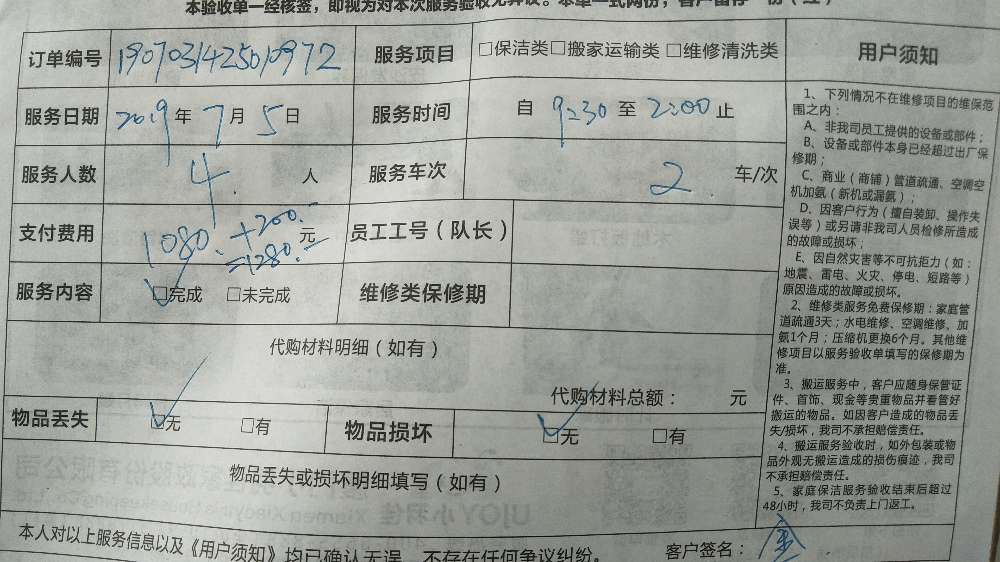 本验收单一经核签，即视为对本次服务验收无异议。本单一式两份，客户留存一份（红）
订单编号 1907031425010972 服务项目 □保洁类□搬家运输类 □维修清洗类
服务日期 2019年7月5日 服务时间 自 9:30 至 2:00 止
服务人数 4 人 服务车次 2 车/次
支付费用 1080.+200.-元 员工工号（队长）
=1280.-
服务内容 ☑完成 □未完成 维修类保修期
代购材料明细（如有）
代购材料总额： 元
物品丢失 ☑无 □有 物品损坏 ☑无 □有
物品丢失或损坏明细填写（如有）
本人对以上服务信息以及《用户须知》均已确认无误，不存在任何争议纠纷。 客户签名：
用户须知
1、下列情况不在维修项目的维保范
围之内：
A、非我司员工提供的设备或部件；
B、设备或部件本身已经超过出厂保
修期；
C、商业（商铺）管道疏通、空调空
机加氨（新机或漏氨）；
D、因客户行为（擅自装卸、操作失
误等）或另请非我司人员检修所造成
的故障或损坏；
E、因自然灾害等不可抗拒力（如：
地震、雷电、火灾、停电、短路等）
原因造成的故障或损坏。
2、维修类服务免费保修期：家庭管
道疏通3天；水电维修、空调维修、加
氨1个月；压缩机更换6个月。其他维
修项目以服务验收单填写的保修期为
准。
3、搬运服务中，客户应随身保管证
件、首饰、现金等贵重物品并看管好
搬运的物品。如因客户造成的物品丢
失/损坏，我司不承担赔偿责任。
4、搬运服务验收时，如外包装或物
品外观无搬运造成的损伤痕迹，我司
不承担赔偿责任。
5、家庭保洁服务验收结束后超过
48小时，我司不负责上门返工。